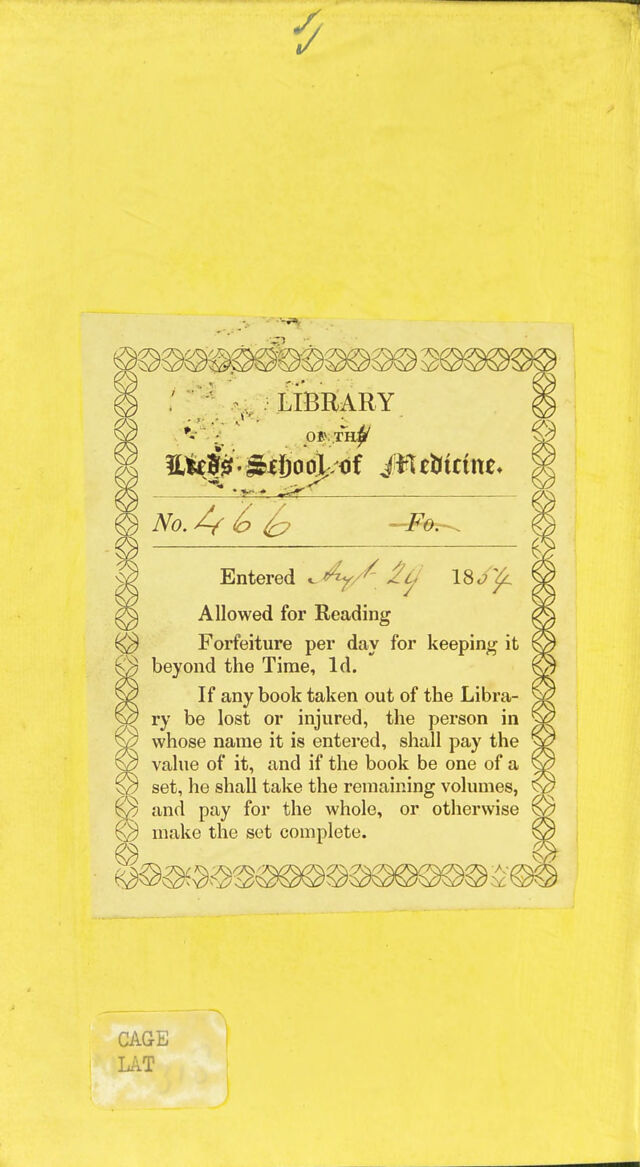 LIBRARY
OF THE
Leeds School of Medicine.
No. 466 Fo.
Entered Sept 29 1854
Allowed for Reading
Forfeiture per day for keeping it
beyond the Time, 1d.
If any book taken out of the Libra-
ry be lost or injured, the person in
whose name it is entered, shall pay the
value of it, and if the book be one of a
set, he shall take the remaining volumes,
and pay for the whole, or otherwise
make the set complete.
CAGE
LAT